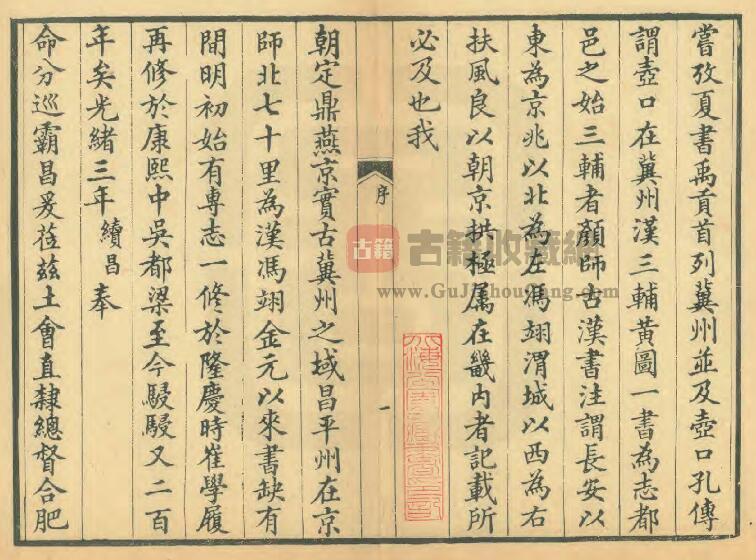 嘗攷夏書禹貢首列冀州並及壺口孔傳
謂壺口在冀州漢三輔黃圖一書為志都
邑之始三輔者顏師古漢書注謂長安以
東為京兆以北為左馮翊渭城以西為右
扶風良以朝京拱極属在畿内者記載所
必及也我
序
一
朝定鼎燕京實古冀州之域昌平州在京
師北七十里為漢馮翊金元以來書缺有
間明初始有專志一修於隆慶時崔學履
再修於康熙中吳都梁至今駸駸又二百
年矣光緒三年續昌奉
命分巡霸昌爰莅兹土會直隸總督合肥
古籍 古籍收藏網
www.GuJiShouCang.com